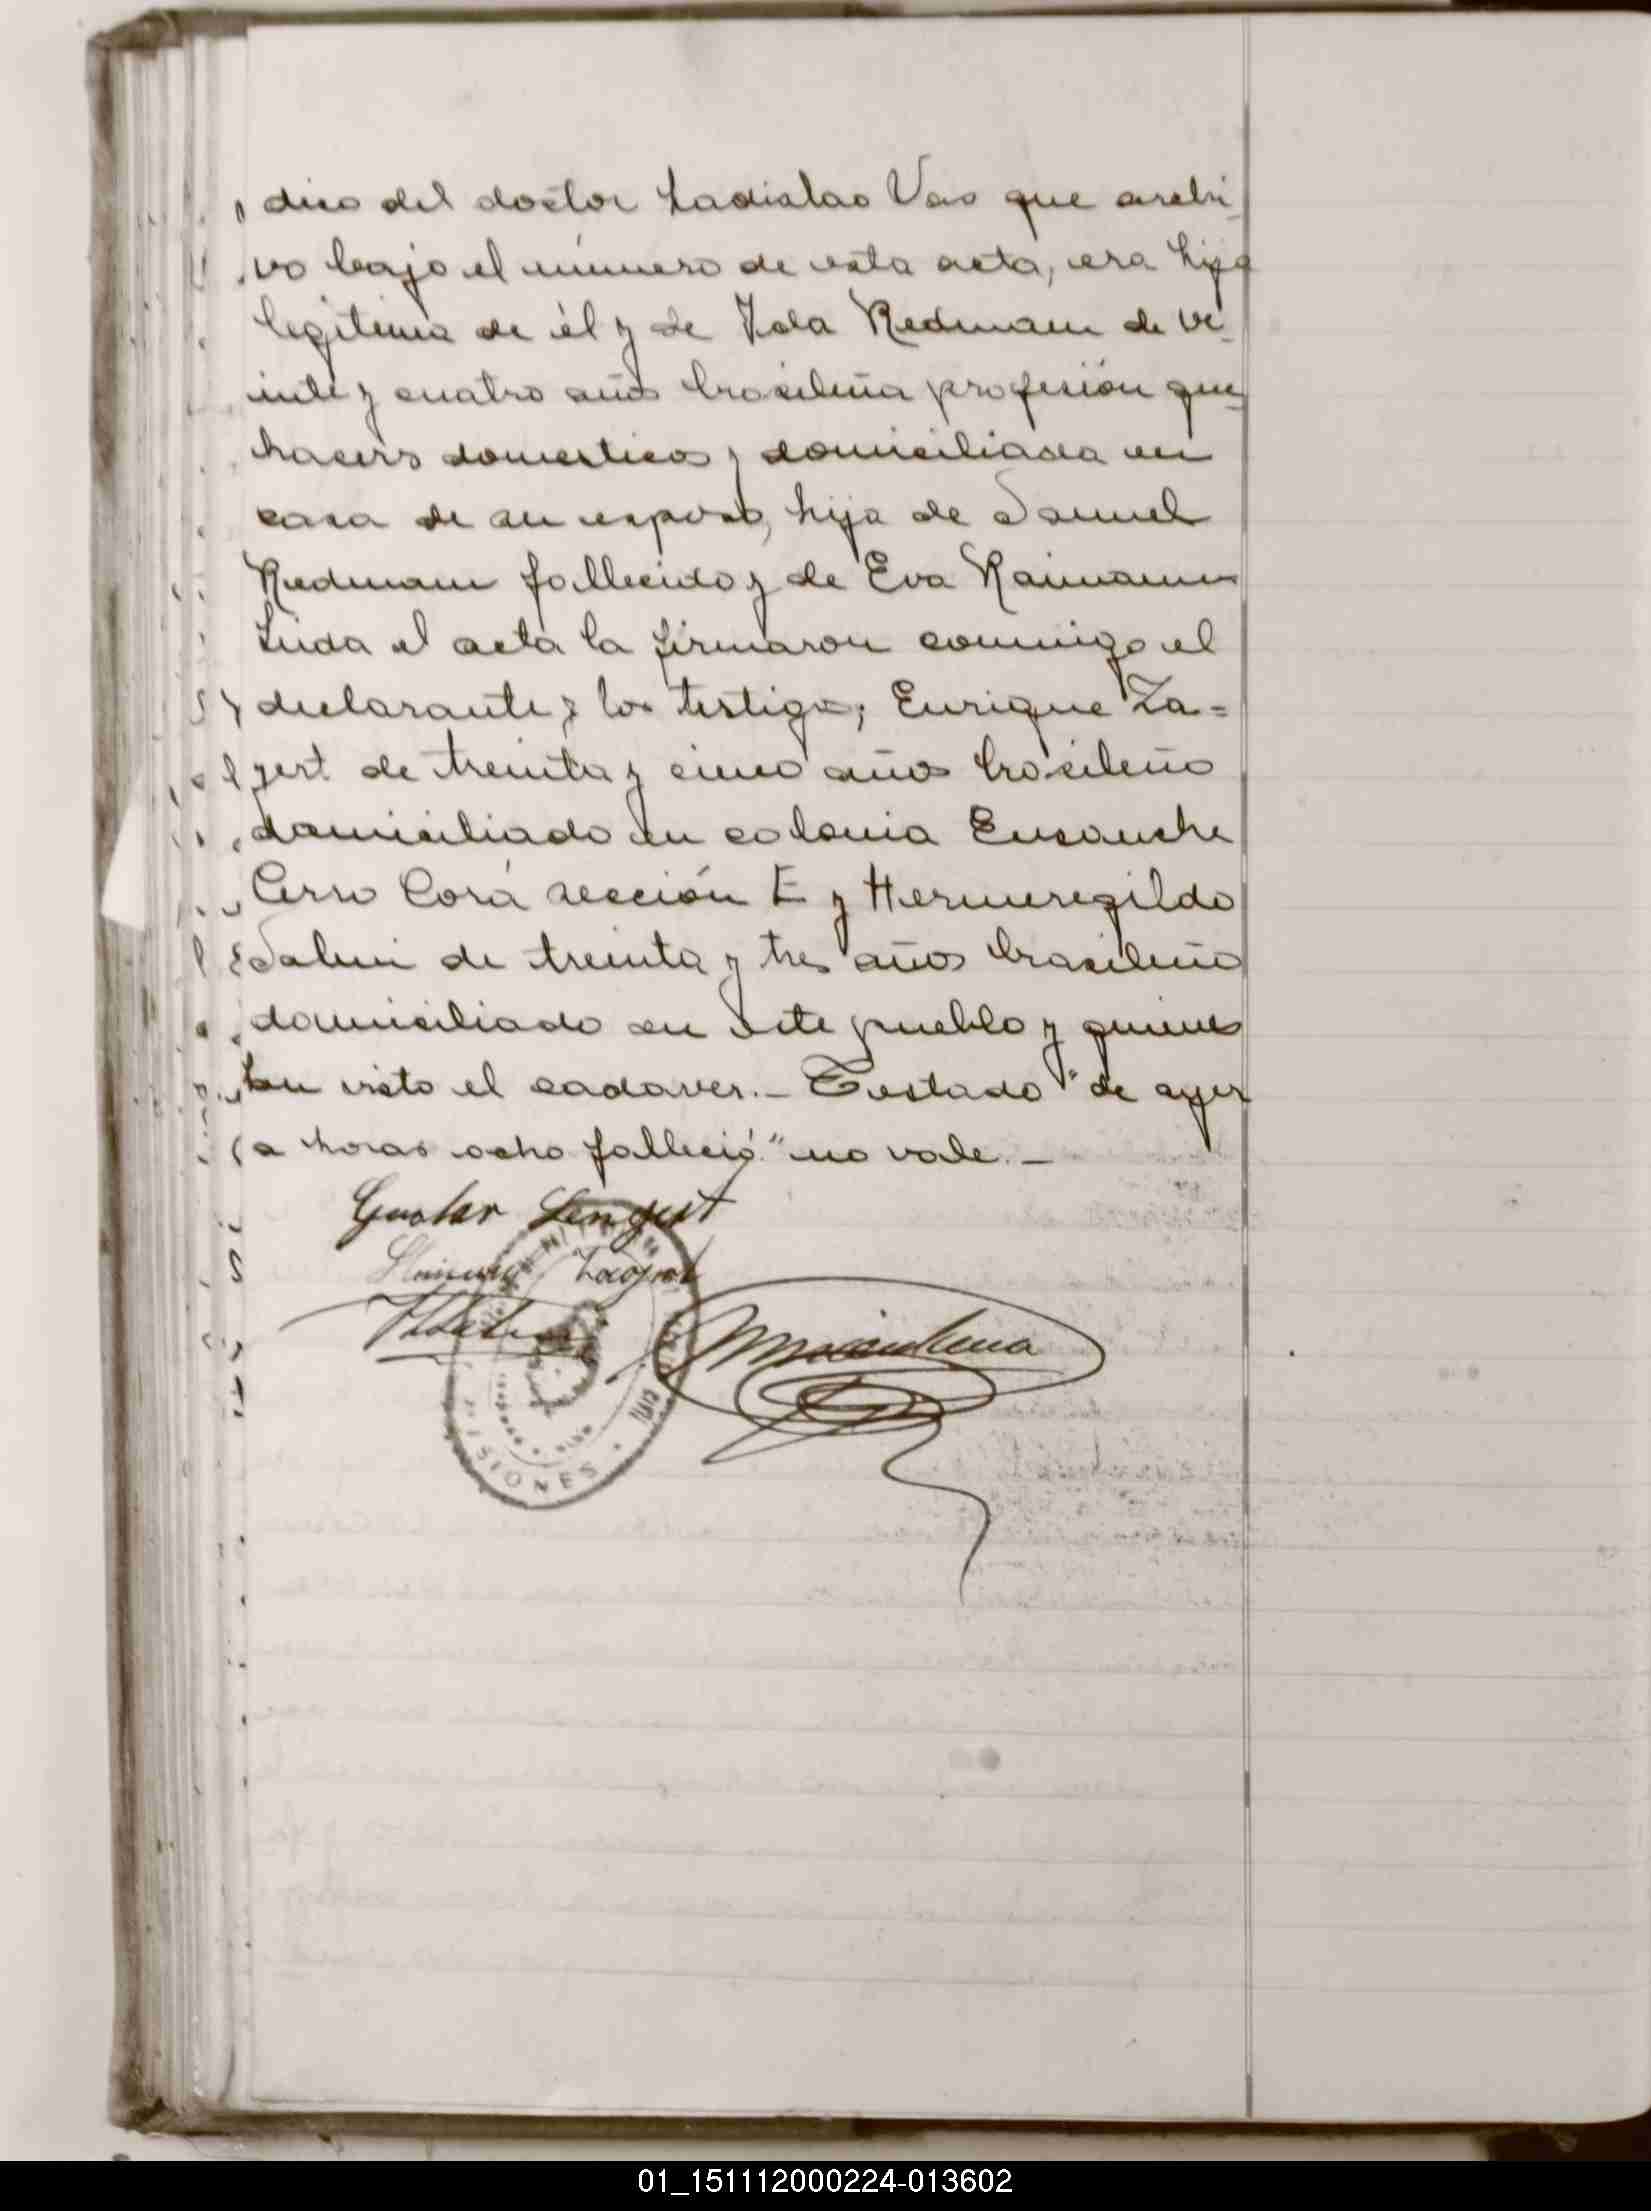 dico del doctor Ladislao Vas que archi-
vo bajo el número de esta acta, era hija
legitima de él y de Ida Redmann de ve-
inte y cuatro años brasileña profesión que-
haceres domesticos y domiciliada en
casa de su esposo, hija de Samuel
Redmann fallecido y de Eva Raimann
Leida el acta la firmaron conmigo el
declarante y los testigos; Enrique Za=
gert de treinta y cinco años brasileño
domiciliado en colonia Ensanche
Cerro Corá sección E y Hermeregildo
Salmi de treinta y tres años brasileño
domiciliado en este pueblo y quienes
han visto el cadaver.- Testado "de ayer
a horas ocho falleció" no vale.-
Gustav
ISIONES
01_151112000224-013602